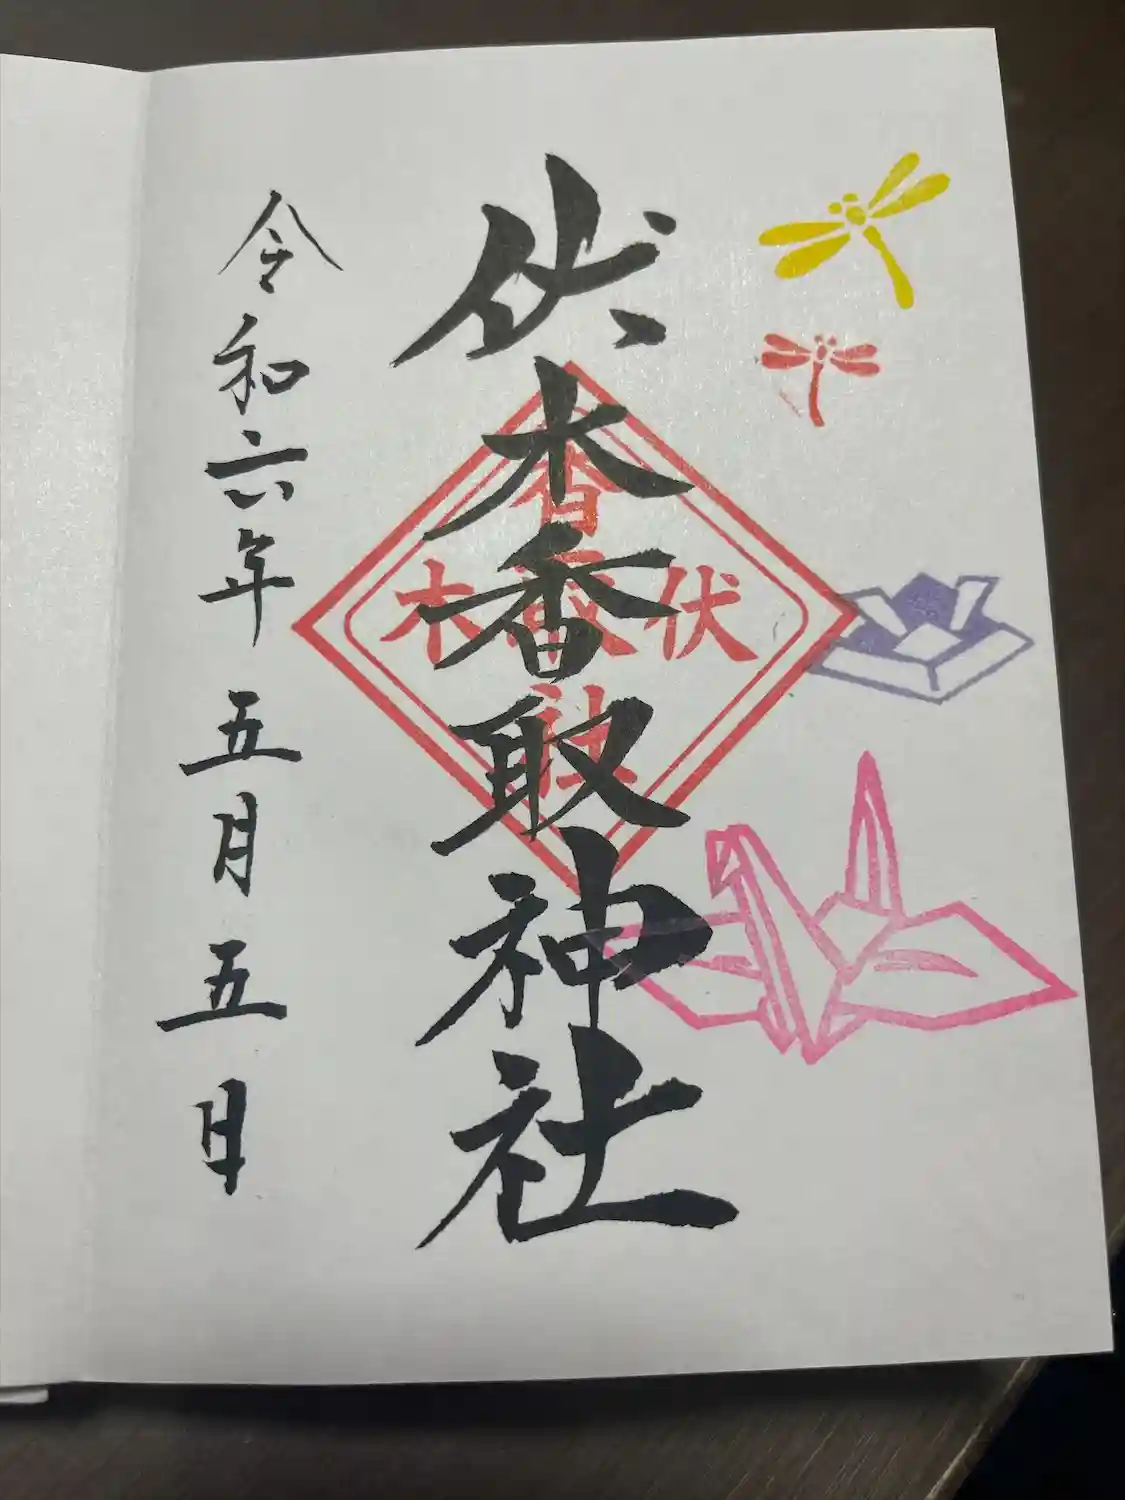 伏木香取神社
香
木取伏
社
令和六年五月五日